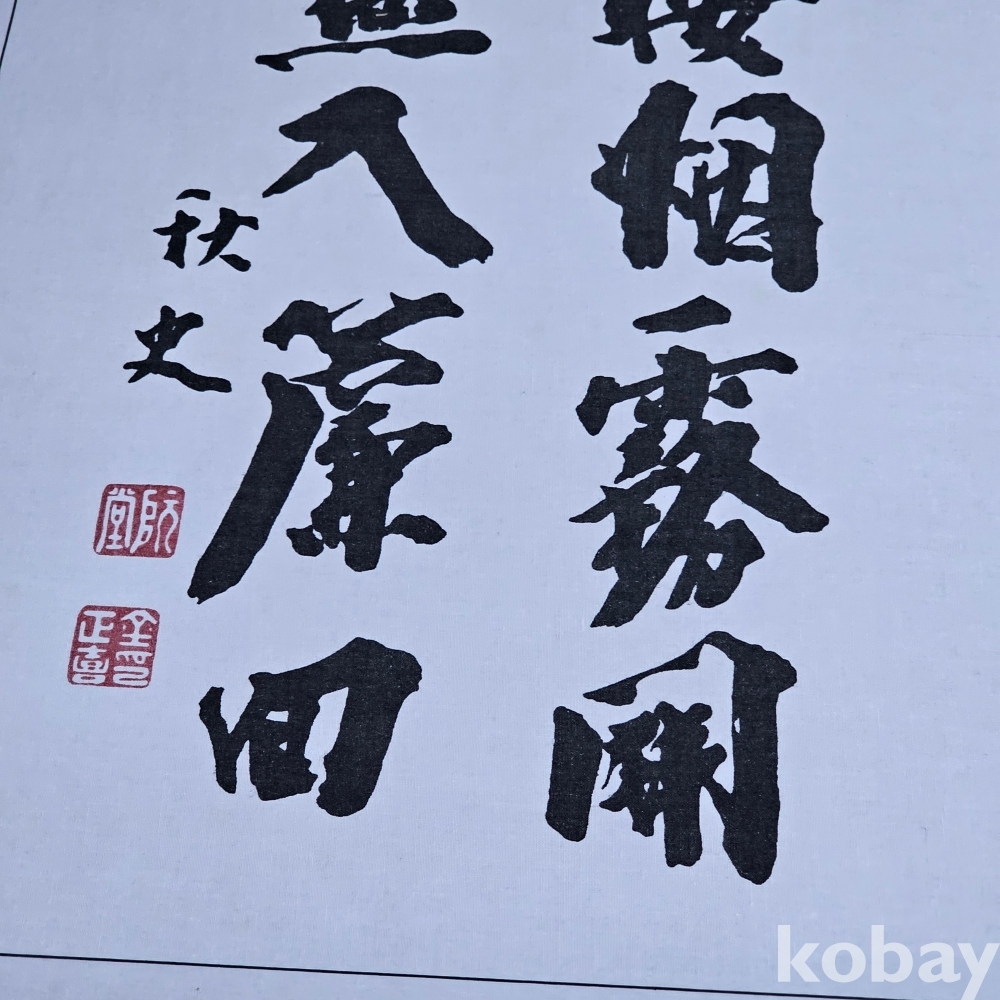 烟霧開
入簾回
秋史
阮堂
金正喜印
kobay